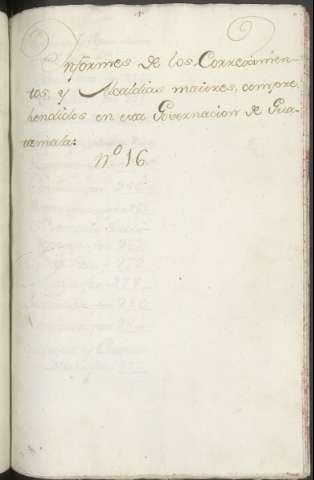 Informes de los Correximien-
tos, y Alcaldias maiores, compre-
hendidos en esta Governacion de Gua-
temala:
Nº 16